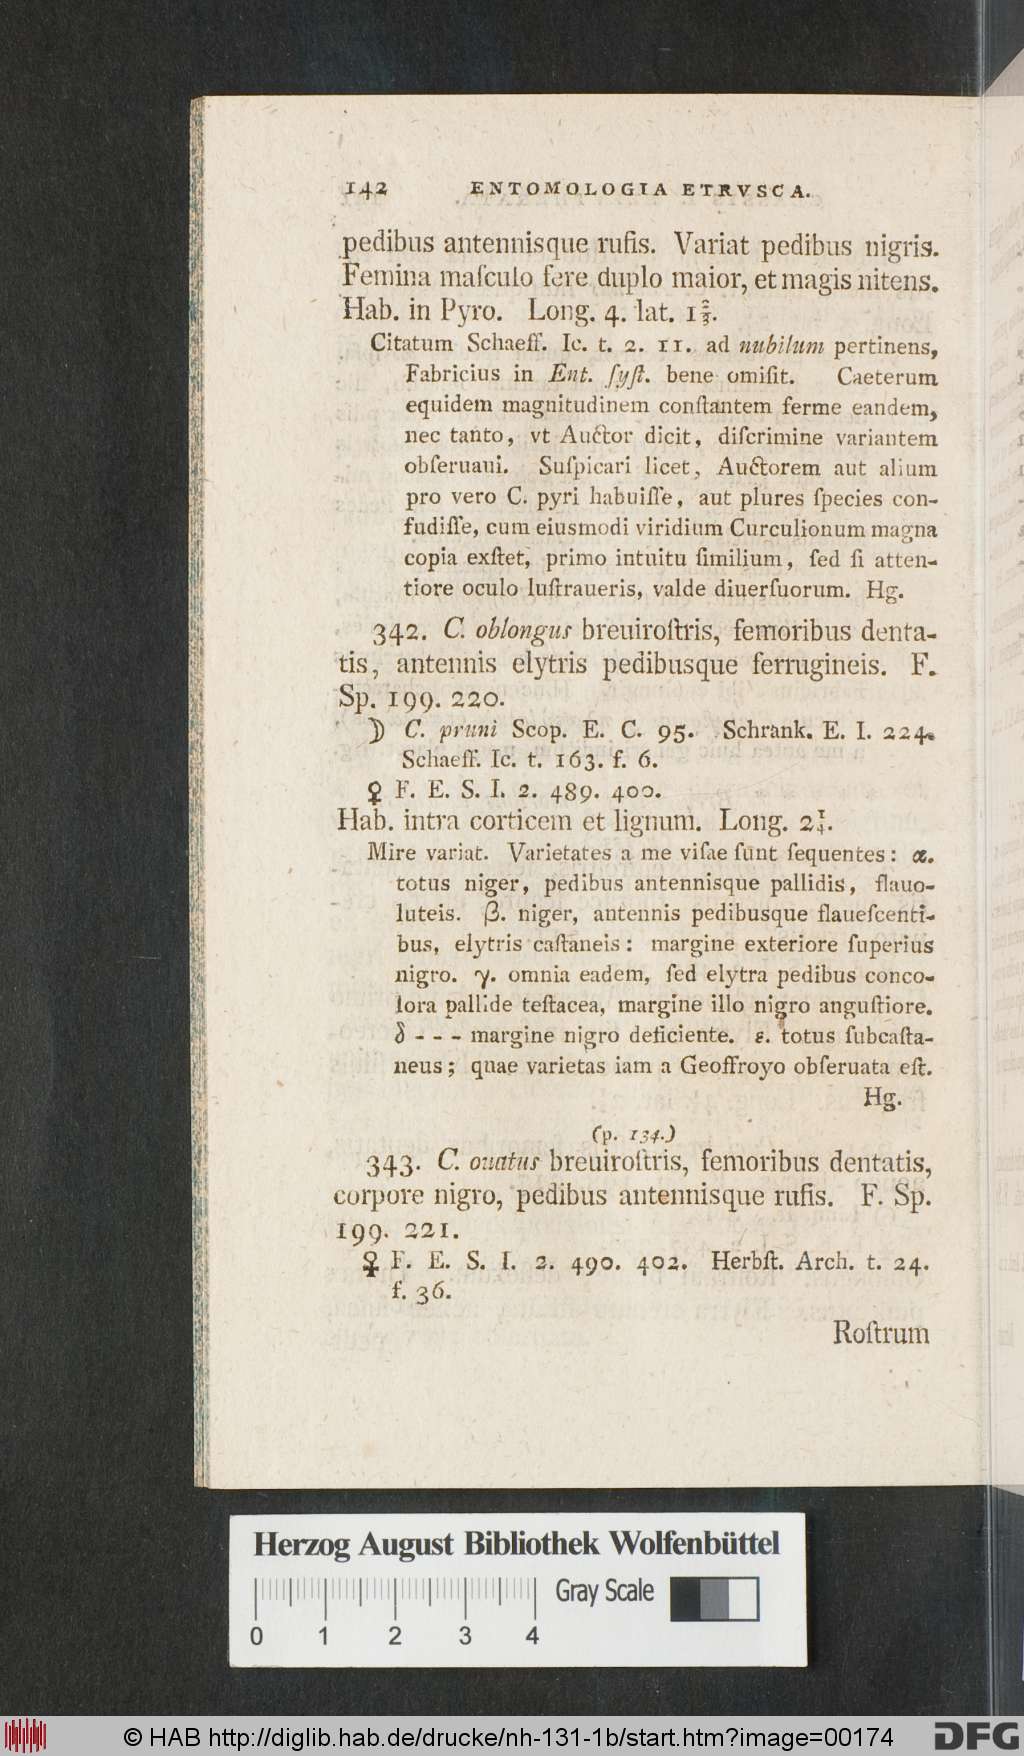 142 ENTOMOLOGIA ETRVSCA.
pedibus antennisque rufis. Variat pedibus nigris.
Femina maſculo fere duplo maior, et magis nitens.
Hab. in Pyro. Long. 4. lat. 1⅔.
Citatum Schaeff. Ic. t. 2. 11. ad nubilum pertinens,
Fabricius in Ent. ſyſt. bene omiſit. Caeterum
equidem magnitudinem conſtantem ferme eandem,
nec tanto, vt Auctor dicit, diſcrimine variantem
obſeruaui. Suſpicari licet, Auctorem aut alium
pro vero C. pyri habuiſſe, aut plures ſpecies con-
fudiſſe, cum eiusmodi viridium Curculionum magna
copia exſtet, primo intuitu ſimilium, ſed ſi atten-
tiore oculo luſtraueris, valde diuerſuorum. Hg.
342. C. oblongus breuiroſtris, femoribus denta-
tis, antennis elytris pedibusque ferrugineis. F.
Sp. 199. 220.
☽ C. pruni Scop. E. C. 95. Schrank. E. I. 224.
Schaeff. Ic. t. 163. f. 6.
♀ F. E. S. I. 2. 489. 400.
Hab. intra corticem et lignum. Long. 2¼.
Mire variat. Varietates a me viſae ſunt ſequentes: α.
totus niger, pedibus antennisque pallidis, flauo-
luteis. β. niger, antennis pedibusque flaueſcenti-
bus, elytris caſtaneis: margine exteriore ſuperius
nigro. γ. omnia eadem, ſed elytra pedibus conco-
lora pallide teſtacea, margine illo nigro anguſtiore.
δ - - - margine nigro deficiente. ε. totus ſubcaſta-
neus; quae varietas iam a Geoffroyo obſeruata eſt.
Hg.
(p. 134.)
343. C. ouatus breuiroſtris, femoribus dentatis,
corpore nigro, pedibus antennisque rufis. F. Sp.
199. 221.
♀ F. E. S. I. 2. 490. 402. Herbſt. Arch. t. 24.
f. 36.
Roſtrum
Herzog August Bibliothek Wolfenbüttel
Gray Scale
0 1 2 3 4
© HAB http://diglib.hab.de/drucke/nh-131-1b/start.htm?image=00174 DFG